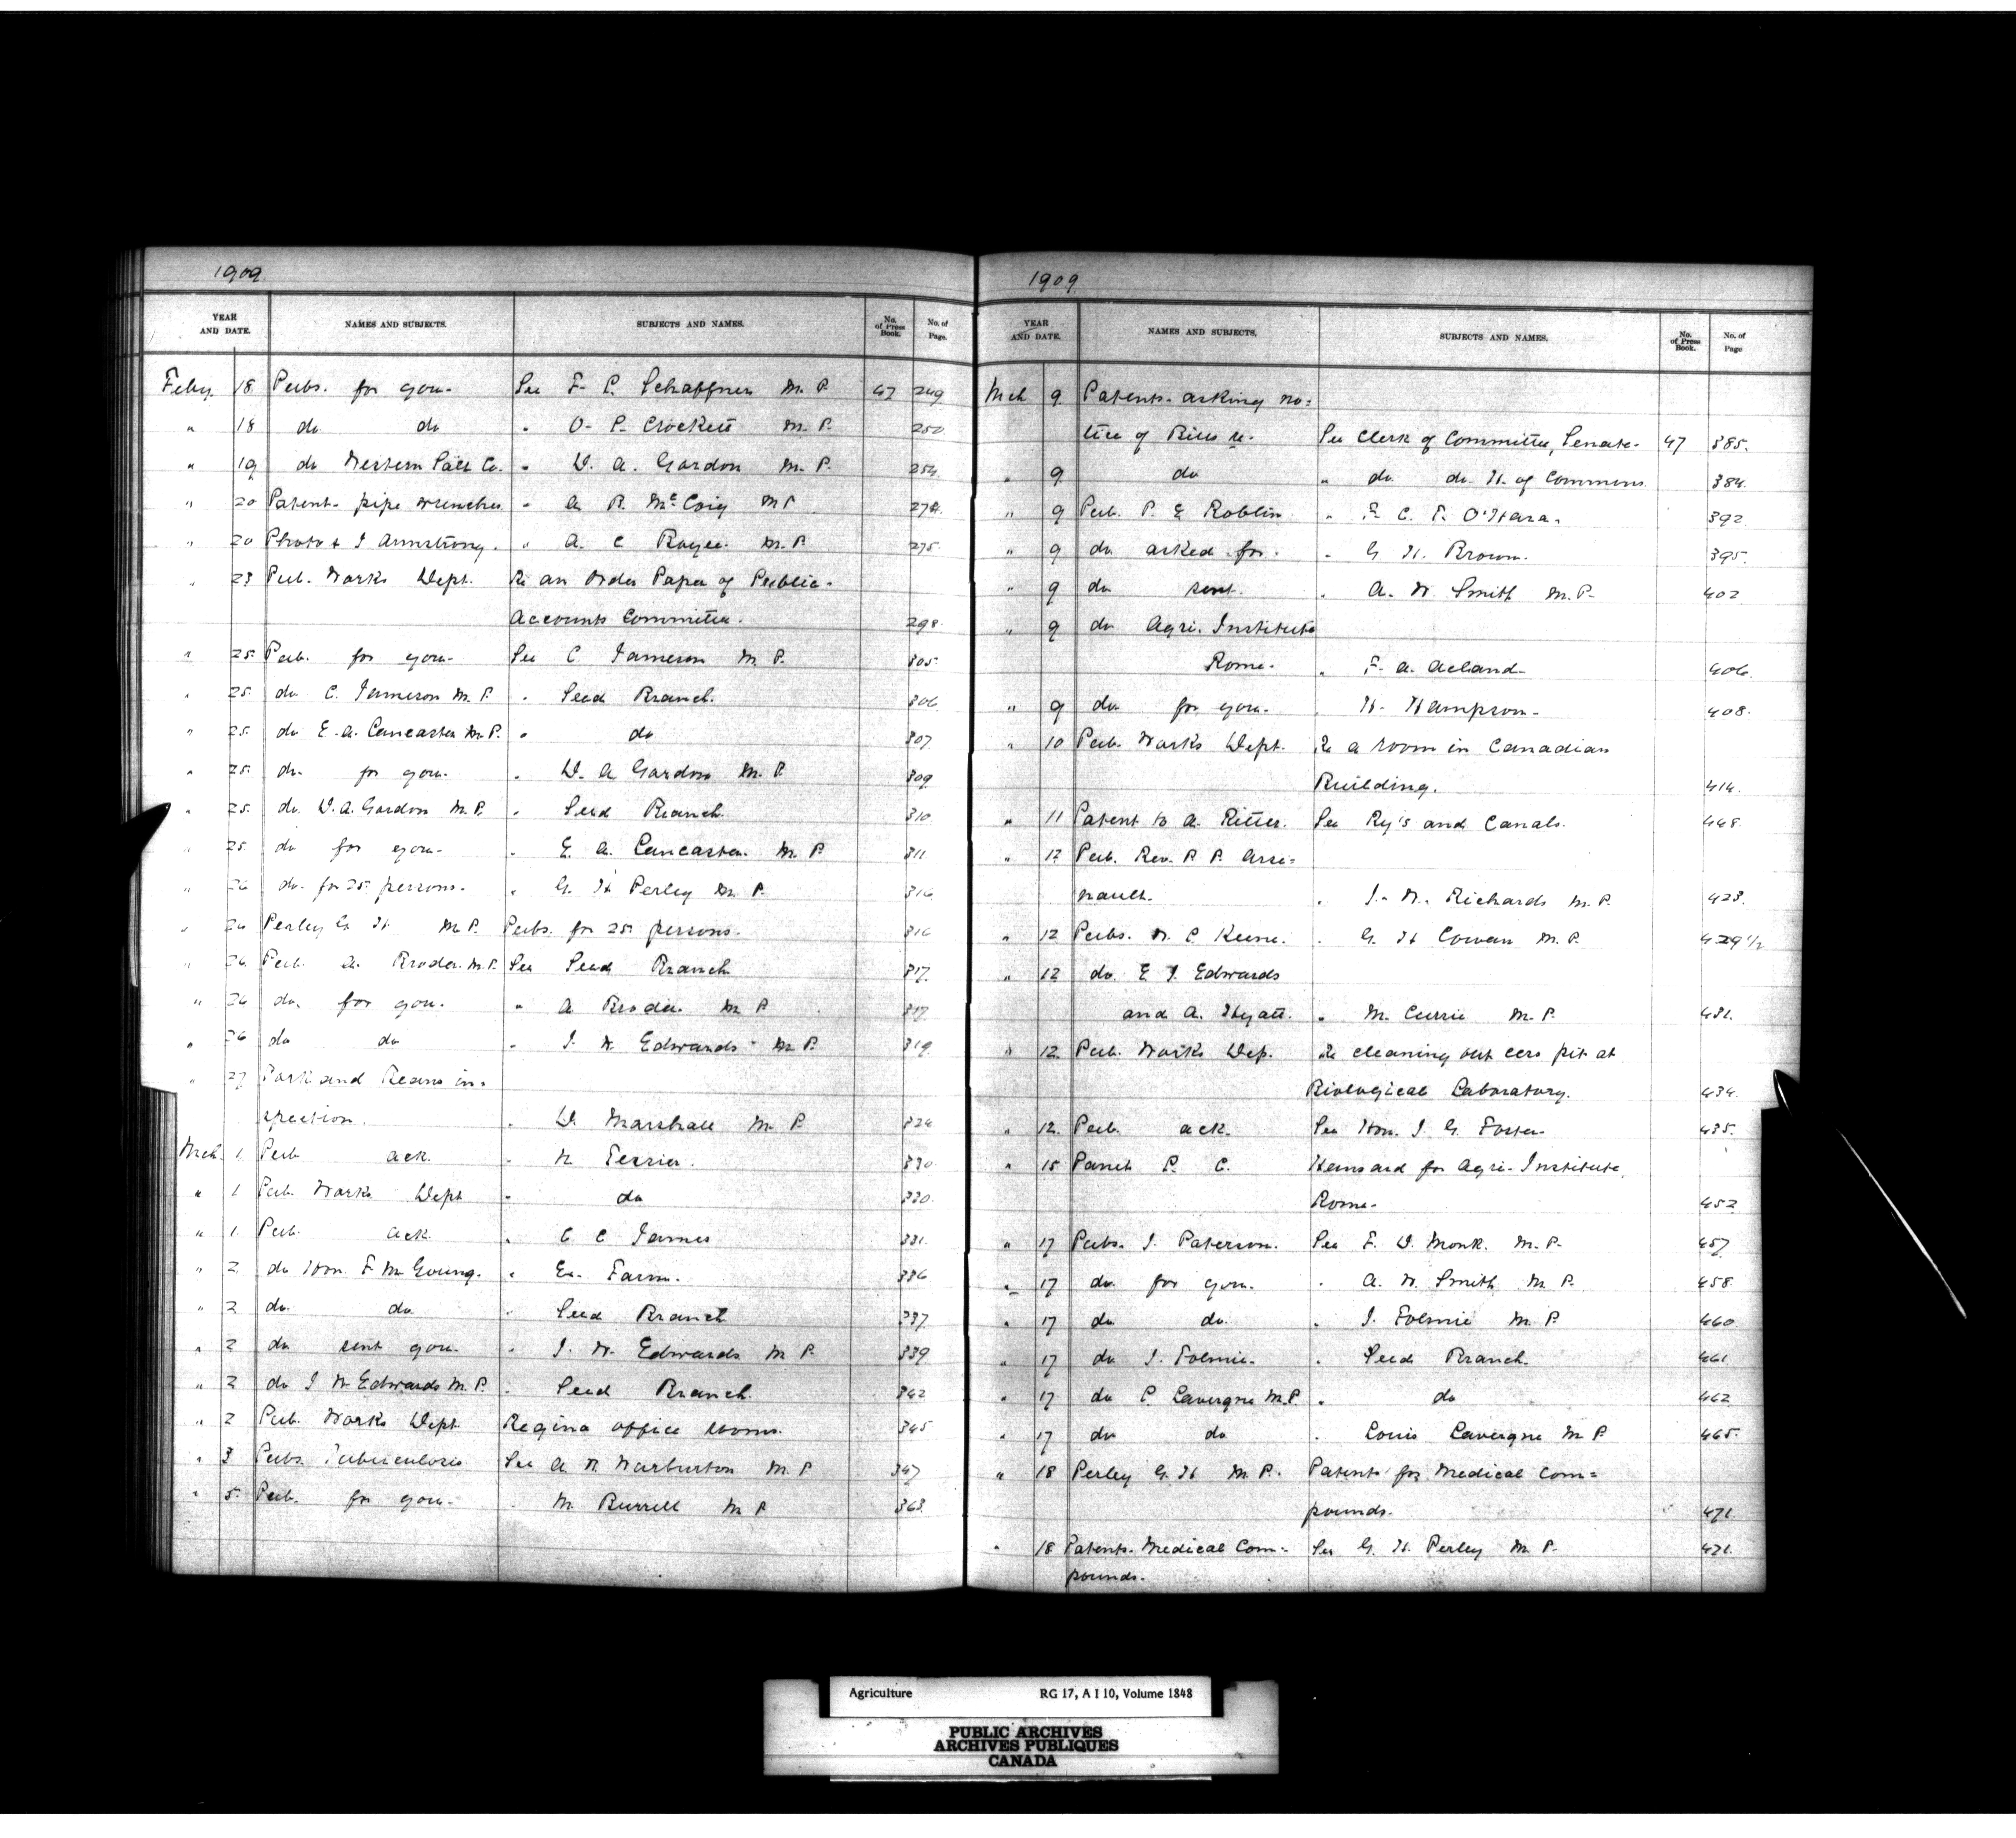 1909
YEAR AND DATE. NAMES AND SUBJECTS. SUBJECTS AND NAMES. No. of Press Book. No. of Page.
Feby. 18 Pubs. for you. See F. L. Schaffner M. P. 47 249
" 18 do do " O. S. Crockett M. P. 250
" 19 do Western Salt Co. " D. A. Gordon M. P. 254
" 20 Patent- pipe wrenches " A. B. McCoig M P 274
" 20 Photo & J Armstrong. " A. C. Boyce. M. P. 275
" 23 Pub. Works Dept. Re an Order Paper of Public
Accounts Committee. 298
" 25 Pub. for you. See C Jameson M. P. 305
" 25 do C. Jameson M. P. " Seed Branch. 306
" 25 do E. A. Lancaster M. P. " do 307
" 25 do for you. " D. A Gordon M. P. 309
" 25 do D. A. Gordon M. P. " Seed Branch. 310
" 25 do for you. " E. A. Lancaster. M. P. 311
" 26 do. for 25 persons. " G. H Perley M. P. 316
" 26 Perley G. H. M. P. Pubs. for 25 persons. 316
" 26 Pub. A. Broder. M. P. See Seed Branch 317
" 26 do. for you. " A Broder M P 317
" 26 do do " J. W. Edwards M. P. 319
" 27 Pork and Beans in=
spection. " D. Marshall M. P. 324
Mch. 1 Pub ack. " N. Tessier. 330
" 1 Pub. Works Dept " do 330
" 1 Pub. ack. " C. C James 331
" 2 do Hon. F. M. Young. " Ex. Farm. 336
" 2 do. do " Seed Branch 337
" 2 do sent you. " J. W. Edwards M P 339
" 2 do J W Edwards M. P. " Seed Branch. 342
" 2 Pub. Works Dept. Regina office rooms. 345
" 3 Pubs. Tuberculosis See A. B. Warburton M. P. 347
" 5 Pub. for you. " M. Burrell M P. 363
1909
YEAR AND DATE. NAMES AND SUBJECTS. SUBJECTS AND NAMES. No. of Press Book. No. of Page
Mch 9 Patents- asking no=
tice of Bills re. See Clerk of Committee, Senate. 47 385.
" 9 do " do do H. of Commons 384
" 9 Pub. P. E Roblin " F. C. T. O'Hara. 392
" 9 do asked for. " G. H. Brown. 395.
" 9 do sent. " A. W. Smith M. P. 402
" 9 do Agri. Institute
Rome. " F. A. Acland 406.
" 9 do for you. " H. Hampson 408.
" 10 Pub. Works Dept. Re a room in Canadian
Building. 414.
" 11 Patent to A. Ritter. See Ry's and Canals. 448
" 12 Pub. Rev. P. P. Arse=
nault. " J. W. Richards M. P. 423.
" 12 Pubs. W. C. Keene. " G. H Cowan M. P. 429 1/2
" 12 do. E J. Edwards
and A. Hyatt. " M. Currie M. P. 431.
" 12 Pub. Works Dep. Re cleaning out cess pit at
Biological Laboratory. 434.
" 12. Pub. ack. See Hon. J. G. Foster 435.
" 15 Panet P. C. Hansard for Agri- Institute
Rome. 452
" 17 Pubs. J. Paterson. See F. D. Monk. M. P. 457
" 17 do for you. " A. W. Smith M P. 458
" 17 do do. " J. Tolmie M. P. 460
" 17 do J. Tolmie. " Seed Branch. 461
" 17 do P. Lavergne M. P. " do 462
" 17 do do " Louis Lavergne M P 465.
" 18 Perley G. H M. P. Patents for Medical Com=
pounds. 471.
" 18 Patents- Medical Com= See G. H. Perley M. P. 471.
pounds.
Agriculture RG 17, A I 10, Volume 1848
PUBLIC ARCHIVES
ARCHIVES PUBLIQUES
CANADA